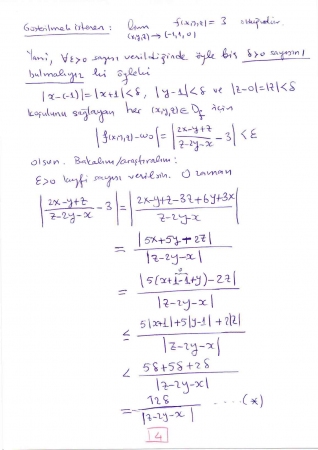 Gösterilmek istenen: lim f(x,y,z) = 3 olduğudur.
(x,y,z)→(-1,1,0)
Yani, ∀ε>0 sayısı verildiğinde öyle bir δ>0 sayısını
bulmalıyız ki öyleki
|x-(-1)|=|x+1|<δ, |y-1|<δ ve |z-0|=|z|<δ
koşulunu sağlayan her (x,y,z)∈D_f için
|f(x,y,z)-w₀| = |(2x-y+z)/(z-2y-x) - 3| < ε
olsun. Bakalım/araştıralım:
ε>0 keyfi sayısı verilsin. O zaman
|(2x-y+z)/(z-2y-x) - 3| = |(2x-y+z-3z+6y+3x)/(z-2y-x)|
= |5x+5y-2z| / |z-2y-x|
= |5(x+1-1+y)-2z| / |z-2y-x|
≤ (5|x+1|+5|y-1|+2|z|) / |z-2y-x|
< (5δ+5δ+2δ) / |z-2y-x|
= 12δ / |z-2y-x| .....(*)
4